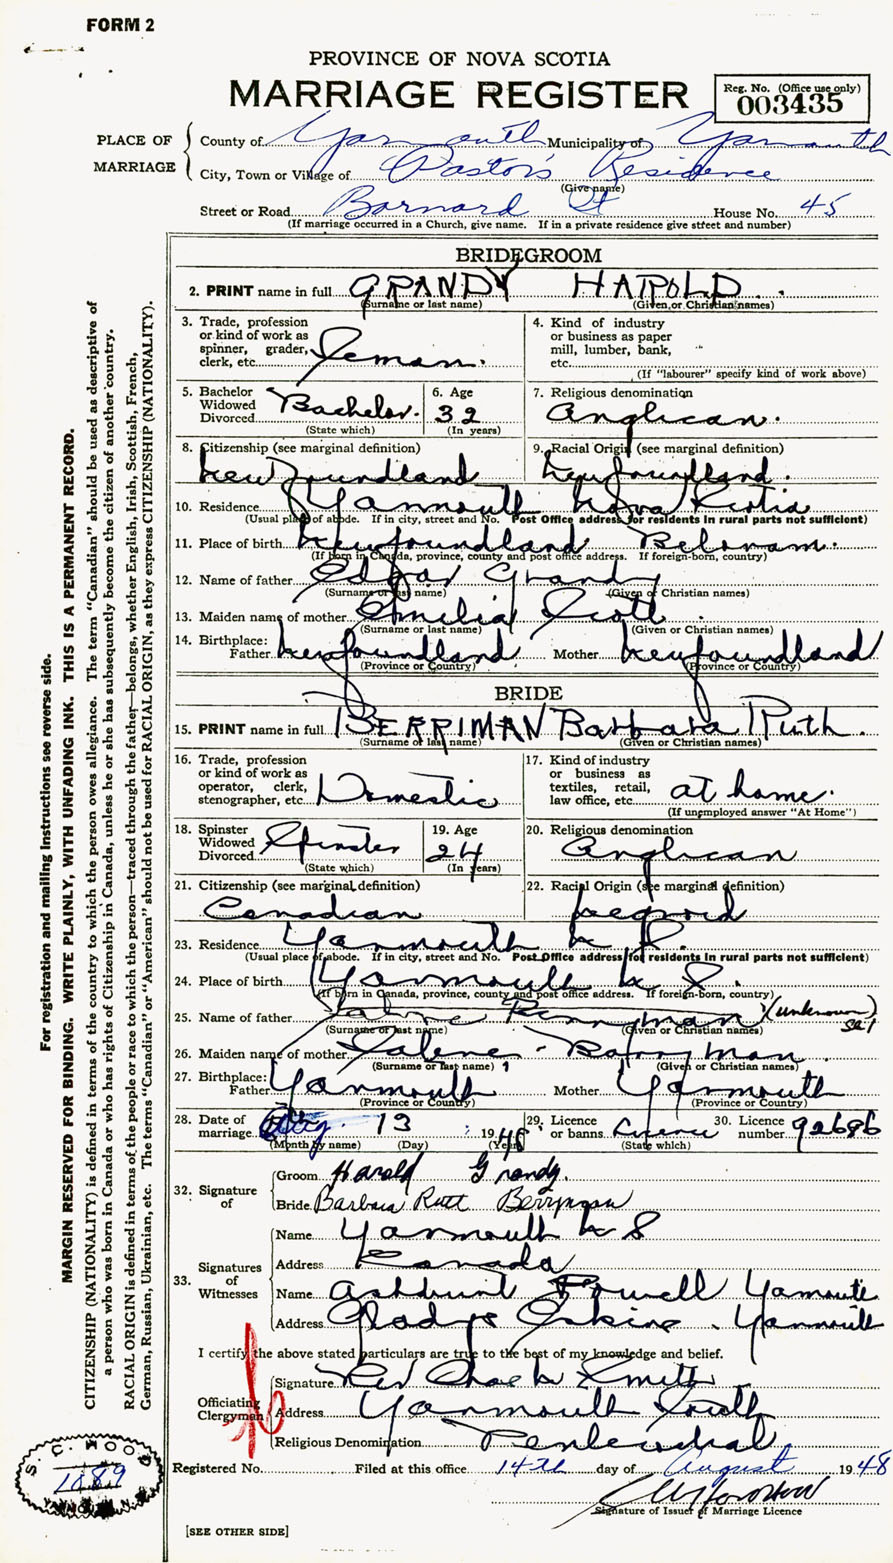 FORM 2
PROVINCE OF NOVA SCOTIA
MARRIAGE REGISTER
Reg. No. (Office use only)
003435
PLACE OF MARRIAGE
County of Yarmouth Municipality of Yarmouth
City, Town or Village of Pastor's Residence
(Give name)
Street or Road Barnard St House No. 45
(If marriage occurred in a Church, give name. If in a private residence give street and number)
BRIDEGROOM
2. PRINT name in full GRANDY HAROLD
(Surname or last name) (Given or Christian names)
3. Trade, profession or kind of work as spinner, grader, clerk, etc. Seman.
4. Kind of industry or business as paper mill, lumber, bank, etc.
(If "labourer" specify kind of work above)
5. Bachelor Widowed Divorced Bachelor.
(State which)
6. Age 32
(In years)
7. Religious denomination Anglican.
8. Citizenship (see marginal definition) Newfoundland
9. Racial Origin (see marginal definition) Newfoundland.
10. Residence Yarmouth Nova Scotia
(Usual place of abode. If in city, street and No. Post Office address for residents in rural parts not sufficient)
11. Place of birth Newfoundland
(If born in Canada, province, county and post office address. If foreign-born, country)
12. Name of father Edgar Grandy
(Surname or last name) (Given or Christian names)
13. Maiden name of mother Amelia Scott
(Surname or last name) (Given or Christian names)
14. Birthplace: Father Newfoundland Mother Newfoundland
(Province or Country) (Province or Country)
BRIDE
15. PRINT name in full BERRIMAN Barbara Ruth.
(Surname or last name) (Given or Christian names)
16. Trade, profession or kind of work as operator, clerk, stenographer, etc. Domestic
17. Kind of industry or business as textiles, retail, law office, etc. at home.
(If unemployed answer "At Home")
18. Spinster Widowed Divorced Spinster
(State which)
19. Age 24
(In years)
20. Religious denomination Anglican
21. Citizenship (see marginal definition) Canadian
22. Racial Origin (see marginal definition)
23. Residence Yarmouth N S.
(Usual place of abode. If in city, street and No. Post Office address for residents in rural parts not sufficient)
24. Place of birth Yarmouth N S.
(If born in Canada, province, county and post office address. If foreign-born, country)
25. Name of father (unknown)
(Surname or last name) (Given or Christian names)
26. Maiden name of mother Salene Barryman.
(Surname or last name) (Given or Christian names)
27. Birthplace: Father Yarmouth Mother Yarmouth
(Province or Country) (Province or Country)
28. Date of marriage Aug. 13 1948
(Month by name) (Day) (Year)
29. Licence or banns Licence
(State which)
30. Licence number 92686
32. Signature of
Groom Harold Grandy.
Bride Barbara Ruth Berryman
33. Signatures of Witnesses
Name Yarmouth N S
Address Canada
Name Powell Yarmouth
Address Gladys Erskine. Yarmouth
I certify the above stated particulars are true to the best of my knowledge and belief.
Officiating Clergyman
Signature Rev Chas Smith
Address Yarmouth South
Religious Denomination Pentecostal
Registered No. Filed at this office 14th day of August 1948
Signature of Issuer of Marriage Licence
[SEE OTHER SIDE]
For registration and mailing instructions see reverse side.
MARGIN RESERVED FOR BINDING. WRITE PLAINLY, WITH UNFADING INK. THIS IS A PERMANENT RECORD.
CITIZENSHIP (NATIONALITY) is defined in terms of the country to which the person owes allegiance. The term "Canadian" should be used as descriptive of
a person who was born in Canada or who has rights of Citizenship in Canada, unless he or she has subsequently become the citizen of another country.
RACIAL ORIGIN is defined in terms of the people or race to which the person—traced through the father—belongs, whether English, Irish, Scottish, French,
German, Russian, Ukrainian, etc. The terms "Canadian" or "American" should not be used for RACIAL ORIGIN, as they express CITIZENSHIP (NATIONALITY).
1089